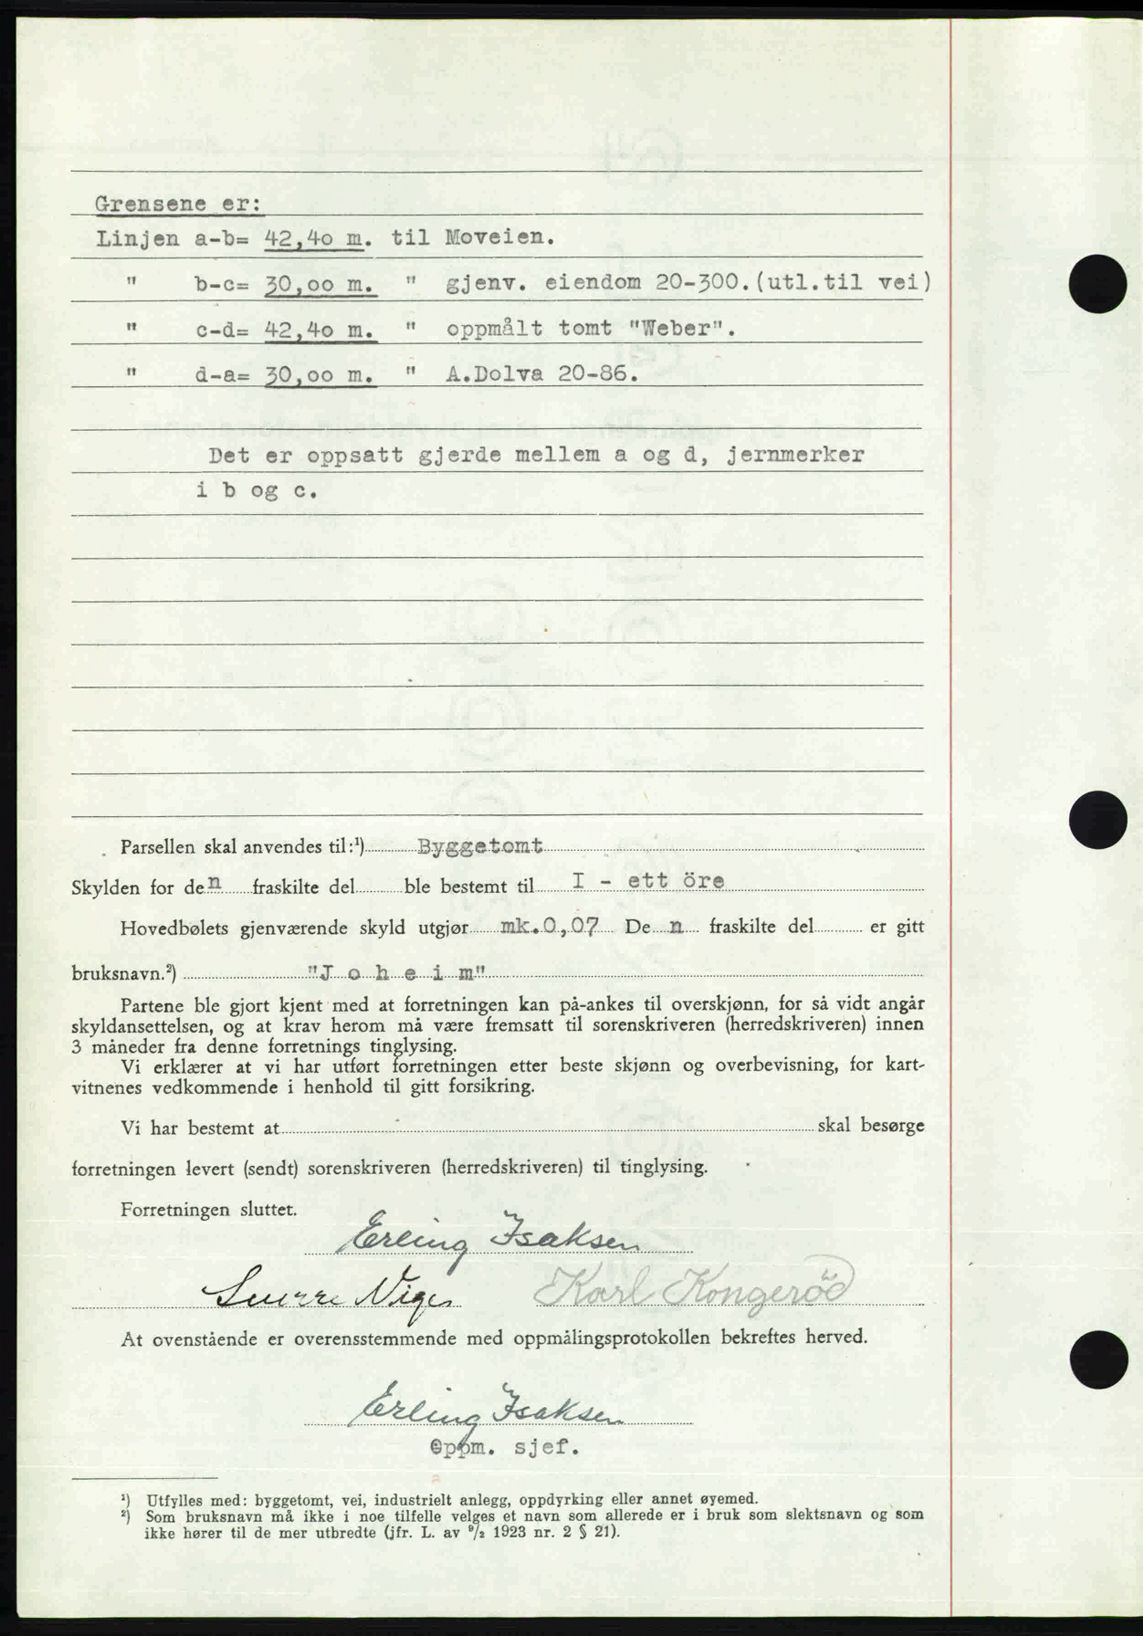 Grensene er:
Linjen a-b= 42,40 m. til Moveien.
" b-c= 30,00 m. " gjenv. eiendom 20-300.(utl.til vei)
" c-d= 42,40 m. " oppmålt tomt "Weber".
" d-a= 30,00 m. " A.Dolva 20-86.
Det er oppsatt gjerde mellem a og d, jernmerker
i b og c.
Parsellen skal anvendes til:¹) Byggetomt
Skylden for den fraskilte del ble bestemt til I - ett öre
Hovedbølets gjenværende skyld utgjør mk.0,07 Den fraskilte del er gitt
bruksnavn.²) "J o h e i m"
Partene ble gjort kjent med at forretningen kan på-ankes til overskjønn, for så vidt angår
skyldansettelsen, og at krav herom må være fremsatt til sorenskriveren (herredskriveren) innen
3 måneder fra denne forretnings tinglysing.
Vi erklærer at vi har utført forretningen etter beste skjønn og overbevisning, for kart-
vitnenes vedkommende i henhold til gitt forsikring.
Vi har bestemt at skal besørge
forretningen levert (sendt) sorenskriveren (herredskriveren) til tinglysing.
Forretningen sluttet.
Erling Isaksen
Karl Kongerød
At ovenstående er overensstemmende med oppmålingsprotokollen bekreftes herved.
Erling Isaksen
Oppm. sjef.
¹) Utfylles med: byggetomt, vei, industrielt anlegg, oppdyrking eller annet øyemed.
²) Som bruksnavn må ikke i noe tilfelle velges et navn som allerede er i bruk som slektsnavn og som
ikke hører til de mer utbredte (jfr. L. av ⁹/₂ 1923 nr. 2 § 21).